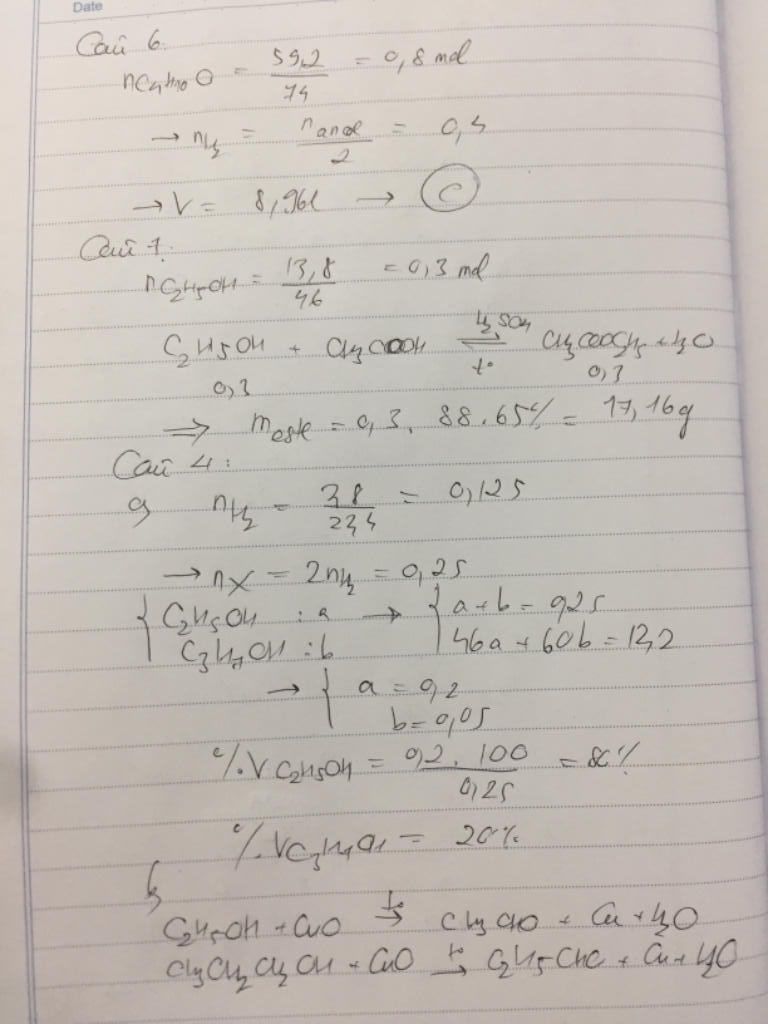 Date
Câu 6.
nC4H10O = 59,2/74 = 0,8 mol
→ nH2 = nancol/2 = 0,4
→ V = 8,96l → C
Câu 7.
nC2H5OH = 13,8/46 = 0,3 mol
C2H5OH + CH3COOH ⇌ CH3COOC2H5 + H2O
H2SO4 t°
0,3 0,3
⇒ meste = 0,3. 88.65% = 17,16g
Câu 4:
a, nH2 = 2,8/22,4 = 0,125
→ nX = 2nH2 = 0,25
{ C2H5OH : a → { a + b = 0,25
C3H7OH : b 46a + 60b = 12,2
→ { a = 0,2
b = 0,05
%VC2H5OH = 0,2.100/0,25 = 80%
%VC3H7OH = 20%
b,
C2H5OH + CuO t°→ CH3CHO + Cu + H2O
CH3CH2CH2OH + CuO t°→ C2H5CHO + Cu + H2O